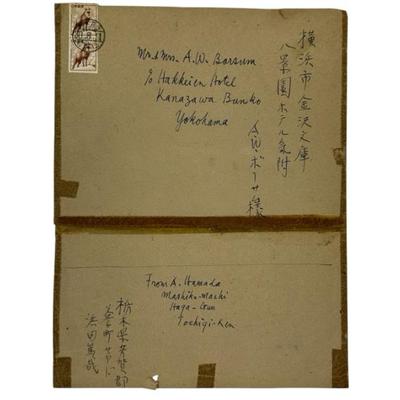 Mr & Mrs. A.W. Barsum
c/o Hakkeien Hotel
Kanazawa Bunko
Yokohama
横浜市金沢文庫
八景園ホテル気附
ボーサム様
From A. Hamada
Mashiko-Machi
Haga-Gun
Tochigi-Ken
栃木県芳賀郡
益子町サヤド
浜田篤哉